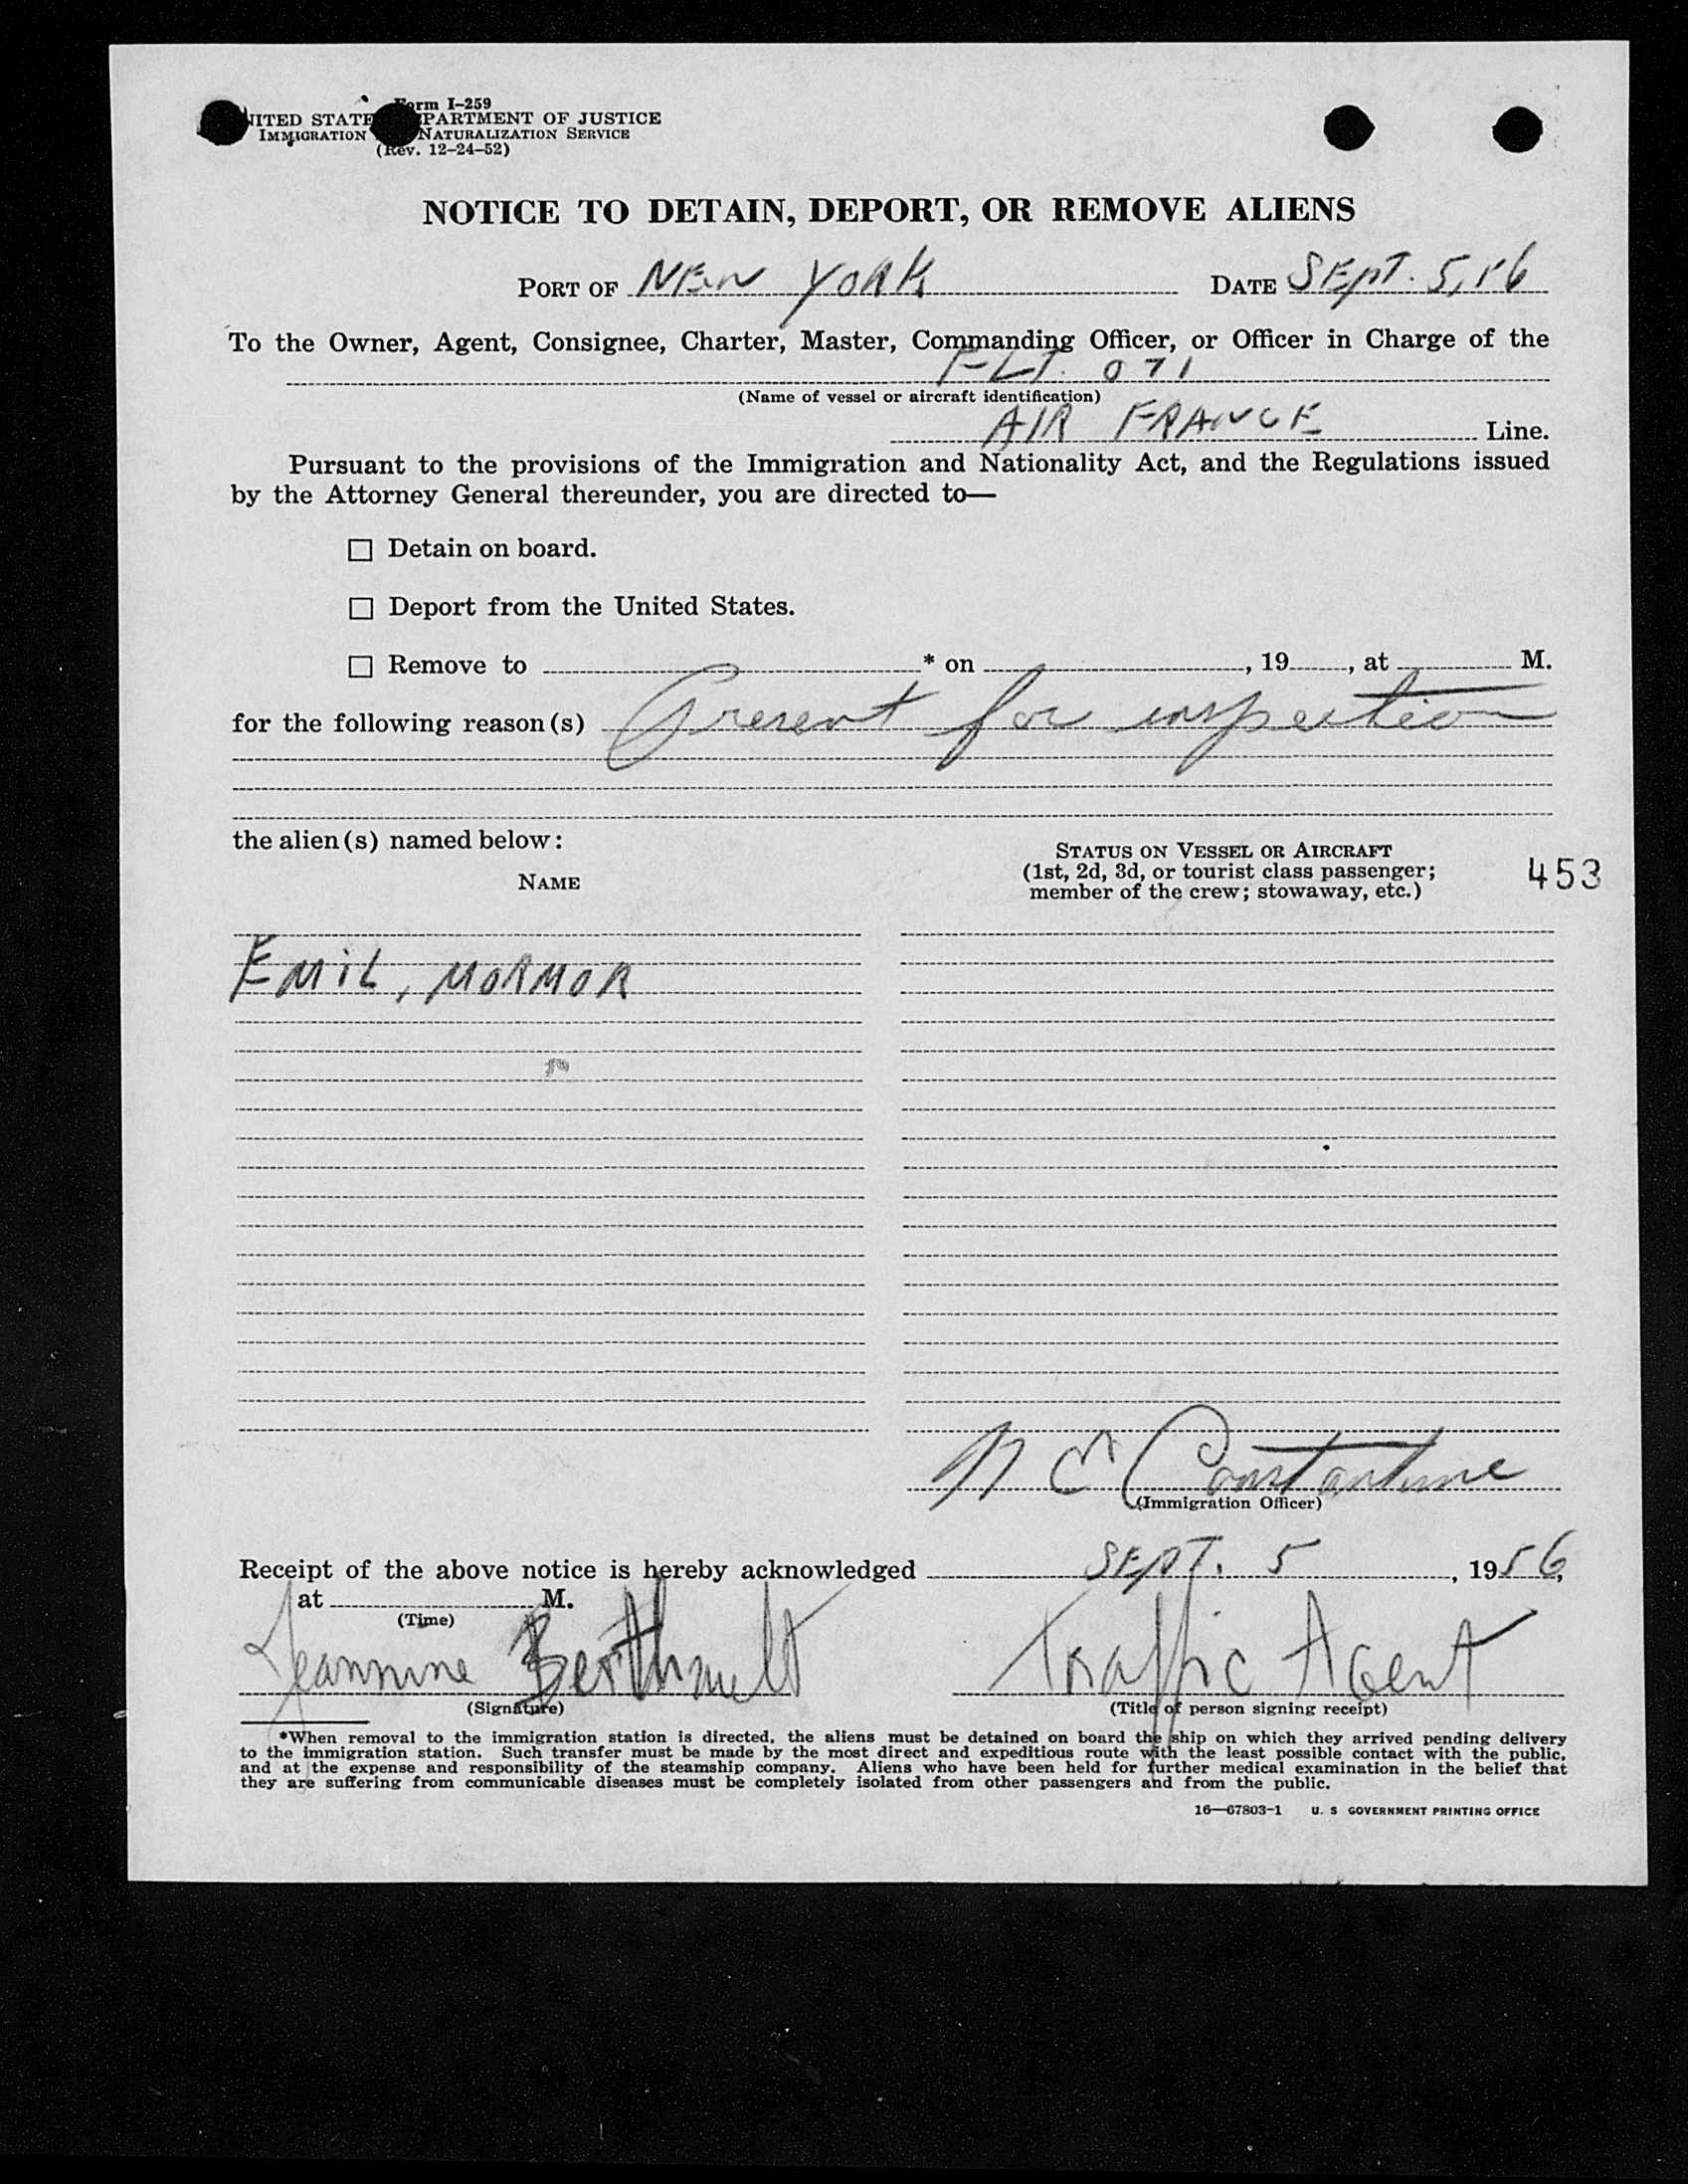 Form I-259
UNITED STATES DEPARTMENT OF JUSTICE
IMMIGRATION NATURALIZATION SERVICE
(Rev. 12-24-52)
NOTICE TO DETAIN, DEPORT, OR REMOVE ALIENS
PORT OF NEW YORK DATE SEPT. 5, 56
To the Owner, Agent, Consignee, Charter, Master, Commanding Officer, or Officer in Charge of the
FLT. 071
(Name of vessel or aircraft identification)
AIR FRANCE Line.
Pursuant to the provisions of the Immigration and Nationality Act, and the Regulations issued
by the Attorney General thereunder, you are directed to—
☐ Detain on board.
☐ Deport from the United States.
☐ Remove to * on , 19 , at M.
for the following reason(s) Present for inspection
the alien(s) named below:
NAME
STATUS ON VESSEL OR AIRCRAFT
(1st, 2d, 3d, or tourist class passenger;
member of the crew; stowaway, etc.)
453
EMIL, MORMOR
N C Constantine
(Immigration Officer)
Receipt of the above notice is hereby acknowledged SEPT. 5, 1956,
at M.
(Time)
Jeannine Berthault Traffic Agent
(Signature) (Title of person signing receipt)
*When removal to the immigration station is directed, the aliens must be detained on board the ship on which they arrived pending delivery
to the immigration station. Such transfer must be made by the most direct and expeditious route with the least possible contact with the public,
and at the expense and responsibility of the steamship company. Aliens who have been held for further medical examination in the belief that
they are suffering from communicable diseases must be completely isolated from other passengers and from the public.
16—67803-1 U. S GOVERNMENT PRINTING OFFICE